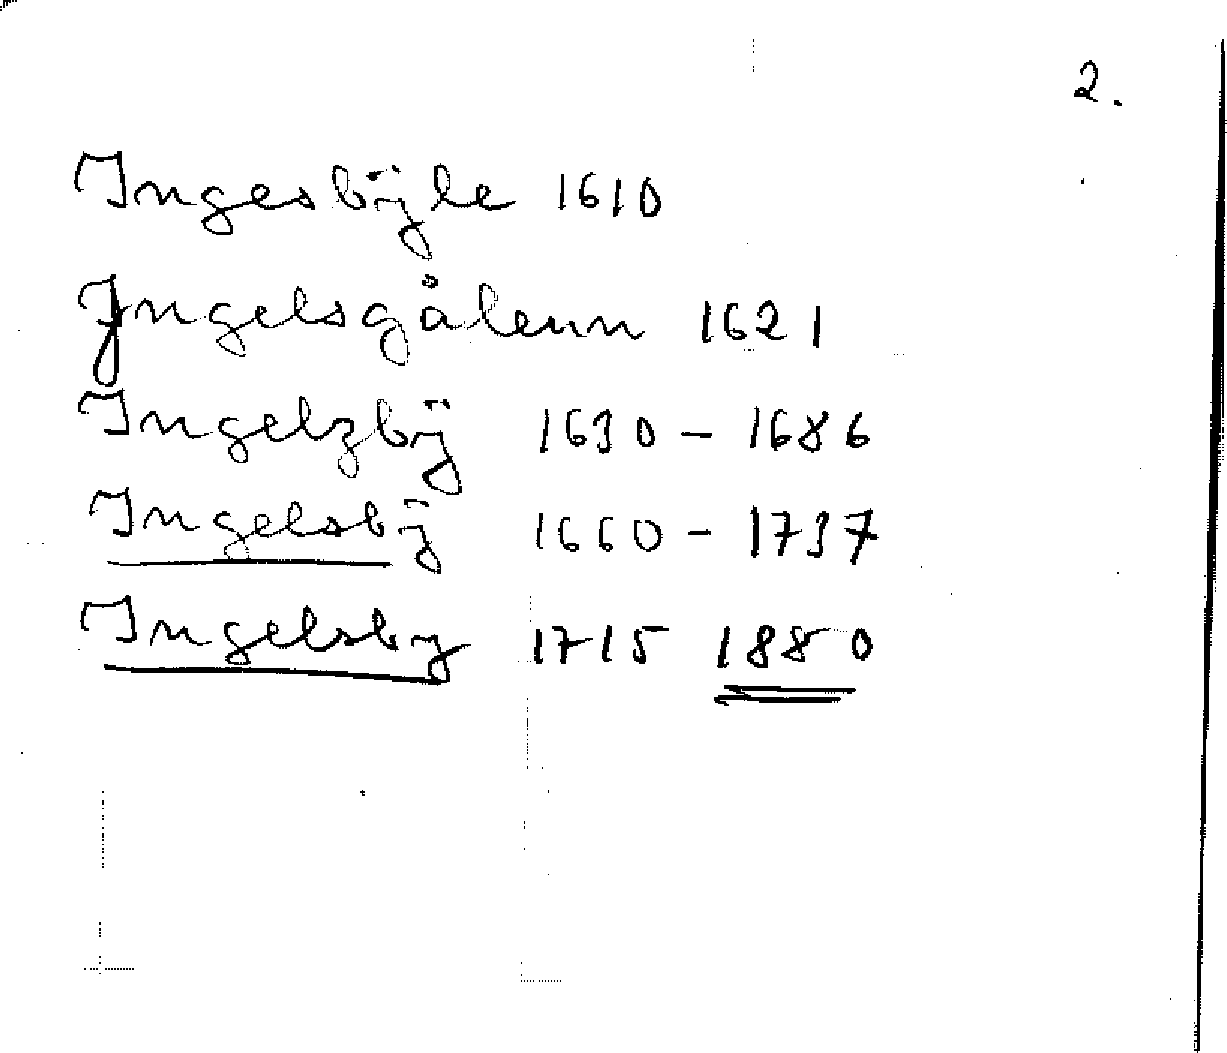 2.
Ingesbÿle 1610
Jngelsgålenn 1621
Ingelzbÿ 1630 - 1686
Ingelsbÿ 1660 - 1737
Ingelsby 1715 1880